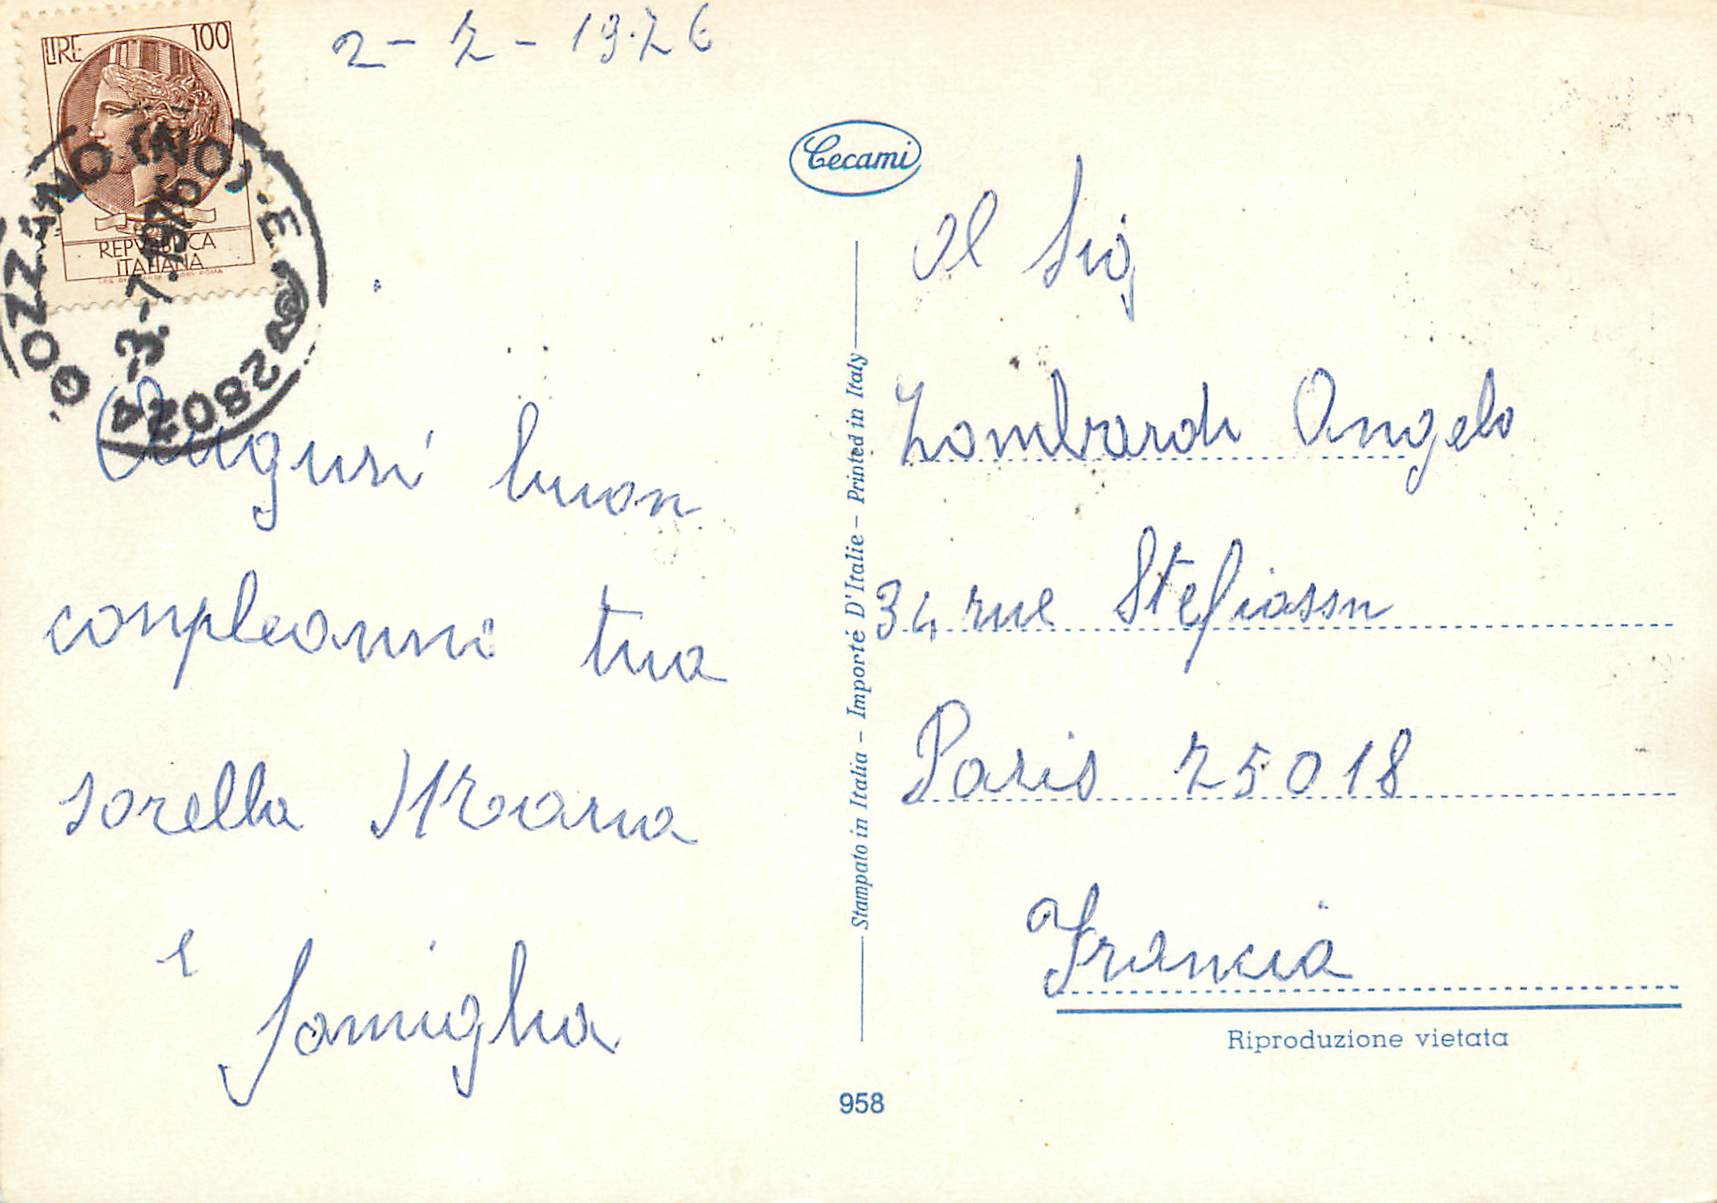 LIRE 100
REPVBBLICA
ITALIANA
GOZZANO (NO)
-3.-7.1976
28024
2-7-1976
Cecami
Auguri buon
conpleanni tua
sorella Maria
e famiglia
Stampato in Italia - Importé D'Italie - Printed in Italy
Al Sig
Lombardi Angelo
34 rue
Paris 75018
Francia
Riproduzione vietata
958